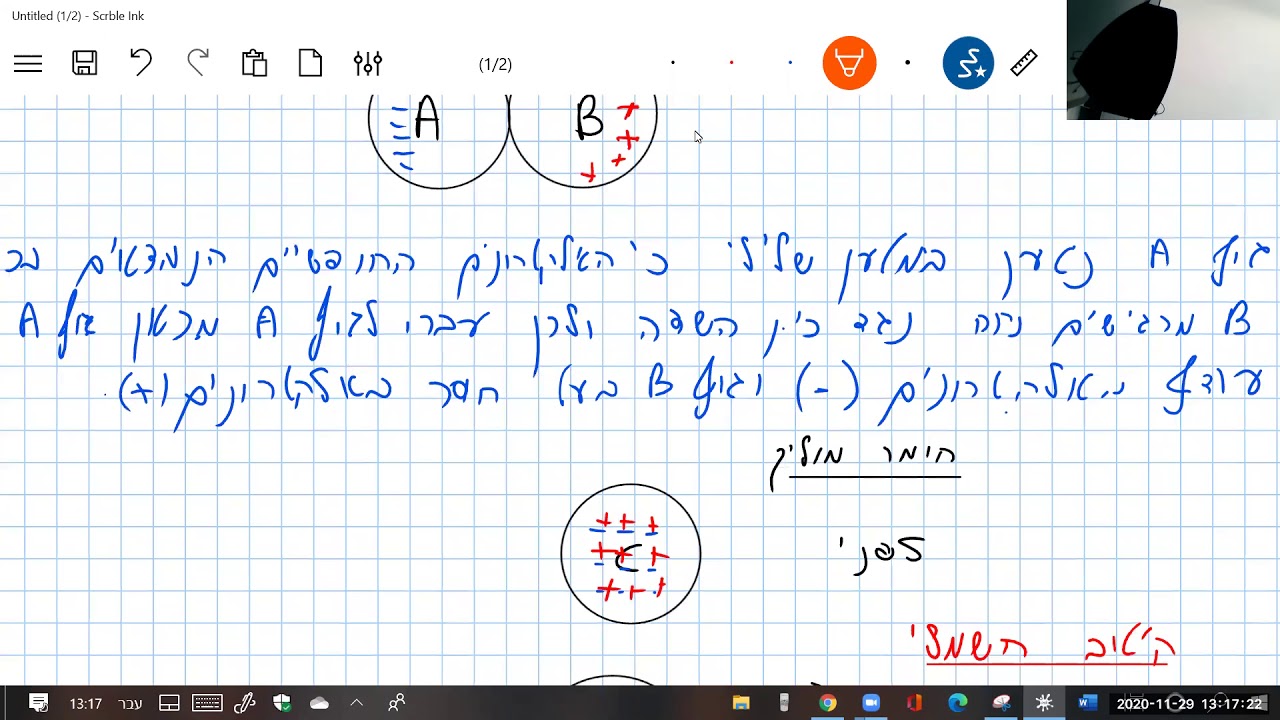 Untitled (1/2) - Scrble Ink
(1/2)
A B
גוף A נטען במטען שלילי כי האלקטרונים החופשיים הנמצאים בכ
B מרגישים כוח נגד כיוון השדה ולכן עברו לגוף A מכאן גוף A
עודף אלקטרונים (-) וגוף B בעל חוסר באלקטרונים (+)
חומר מוליך
C
לפני
קיטוב חשמלי
13:17
עבר
2020-11-29 13:17:22